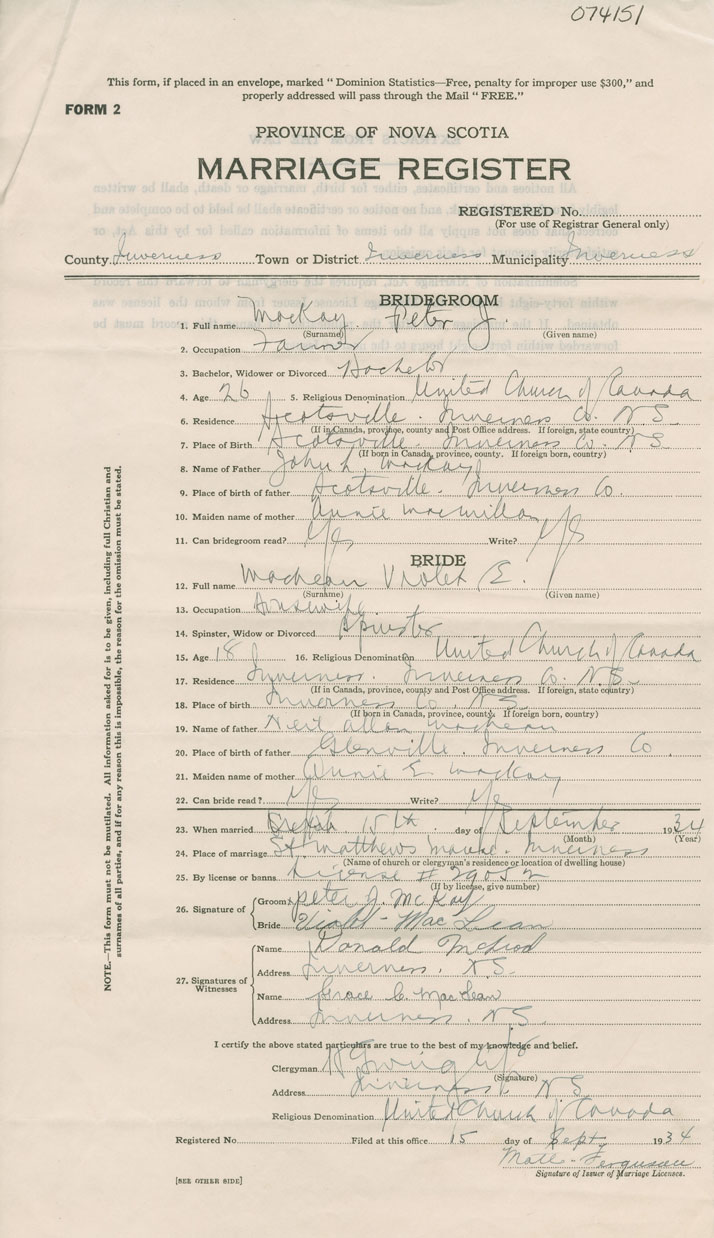 074151
This form, if placed in an envelope, marked " Dominion Statistics—Free, penalty for improper use $300," and
properly addressed will pass through the Mail " FREE."
FORM 2
PROVINCE OF NOVA SCOTIA
MARRIAGE REGISTER
REGISTERED No.
(For use of Registrar General only)
County Inverness Town or District Inverness Municipality Inverness
BRIDEGROOM
1. Full name MacKay Peter J.
(Surname) (Given name)
2. Occupation Farmer
3. Bachelor, Widower or Divorced Bachelor
4. Age 26 5. Religious Denomination United Church of Canada
6. Residence Scotsville. Inverness Co. N S.
(If in Canada, province, county and Post Office address. If foreign, state country)
7. Place of Birth Scotsville. Inverness Co. N S
(If born in Canada, province, county. If foreign born, country)
8. Name of Father John L. MacKay
9. Place of birth of father Scotsville. Inverness Co.
10. Maiden name of mother Annie MacMillan
11. Can bridegroom read? Yes Write? Yes
BRIDE
12. Full name MacLean Violet E.
(Surname) (Given name)
13. Occupation Housewife
14. Spinster, Widow or Divorced Spinster
15. Age 18 16. Religious Denomination United Church of Canada
17. Residence Inverness. Inverness Co. N.S.
(If in Canada, province, county and Post Office address. If foreign, state country)
18. Place of birth Inverness Co. N.S.
(If born in Canada, province, county. If foreign born, country)
19. Name of father Allan MacLean
20. Place of birth of father Glenville. Inverness Co
21. Maiden name of mother Annie E MacKay
22. Can bride read? Yes Write? Yes
23. When married 15th day of September 1934
(Month) (Year)
24. Place of marriage St Matthews Manse. Inverness
(Name of church or clergyman's residence or location of dwelling house)
25. By license or banns License # 29052
(If by license, give number)
26. Signature of Groom Peter J. McKay
Bride Violet MacLean
27. Signatures of Witnesses
Name Donald McLeod
Address Inverness. N.S.
Name Grace C. MacLean
Address Inverness. N S
I certify the above stated particulars are true to the best of my knowledge and belief.
Clergyman
(Signature)
Address Inverness. N S
Religious Denomination United Church of Canada
Registered No. Filed at this office 15 day of Sept 1934
Ferguson
Signature of Issuer of Marriage Licenses.
[SEE OTHER SIDE]
NOTE.—This form must not be mutilated. All information asked for is to be given, including full Christian and
surnames of all parties, and if for any reason this is impossible, the reason for the omission must be stated.